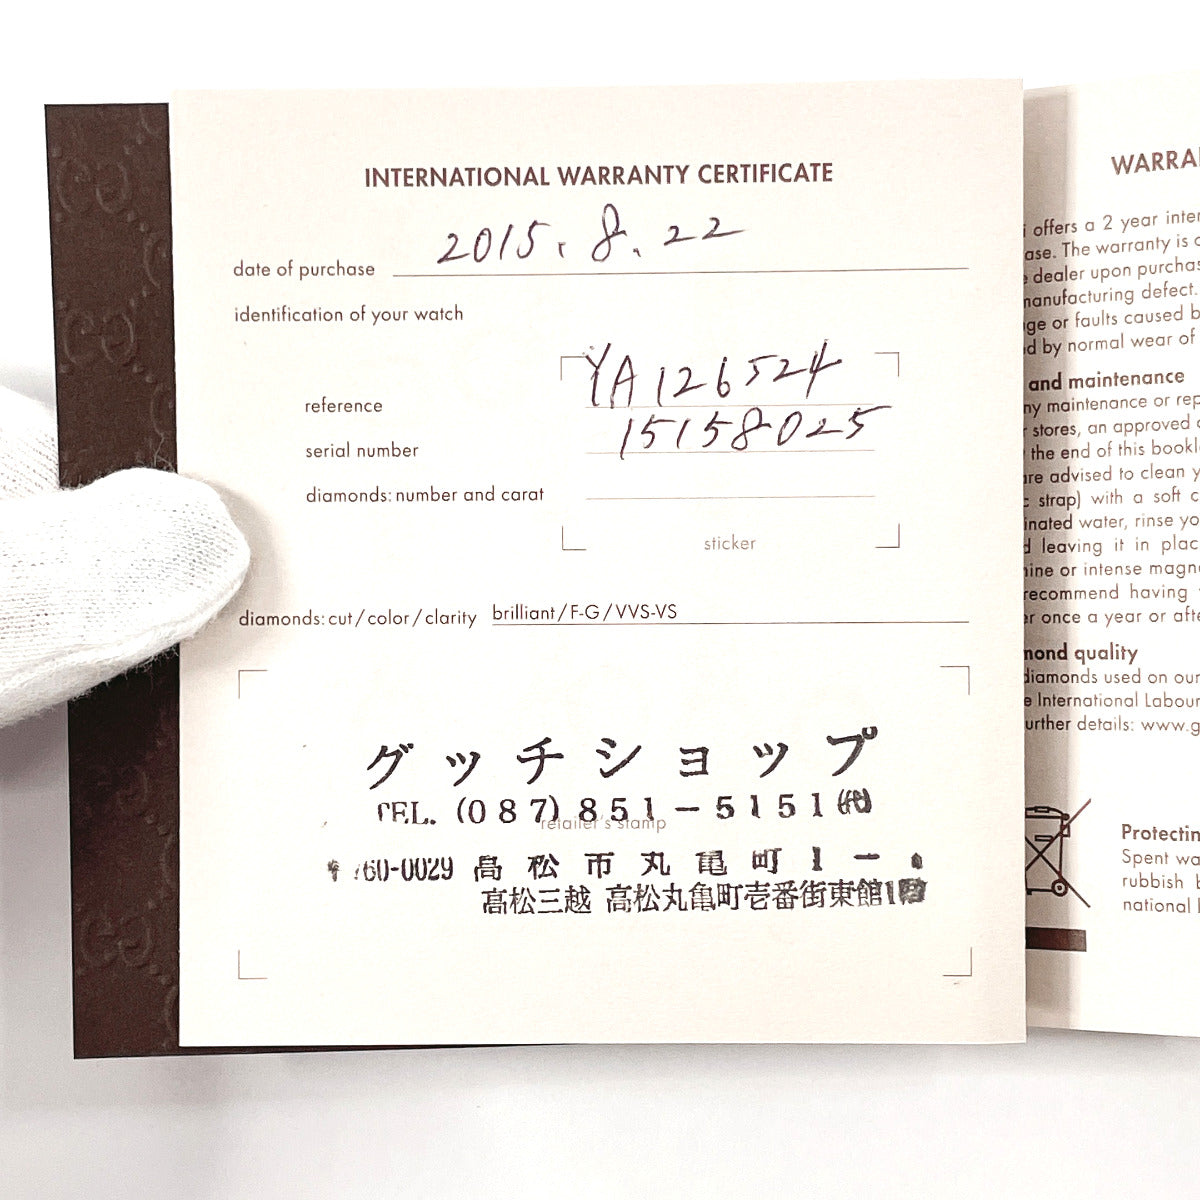 INTERNATIONAL WARRANTY CERTIFICATE
date of purchase 2015.8.22
identification of your watch
reference YA126524
serial number 15158025
diamonds: number and carat
sticker
diamonds: cut/color/clarity brilliant/F-G/VVS-VS
グッチショップ
TEL. (087)851-5151㈹
retailer's stamp
60-0029 高松市丸亀町1-
高松三越 高松丸亀町壱番街東館1
WARRA
i offers a 2 year inter
ase. The warranty is c
e dealer upon purchas
manufacturing defect.
ge or faults caused b
d by normal wear of
and maintenance
ny maintenance or rep
r stores, an approved c
the end of this bookl
are advised to clean y
c strap) with a soft c
inated water, rinse yo
d leaving it in plac
ine or intense magn
recommend having
er once a year or afte
mond quality
diamonds used on our
e International Labour
urther details: www.g
Protectin
Spent wa
rubbish b
national l